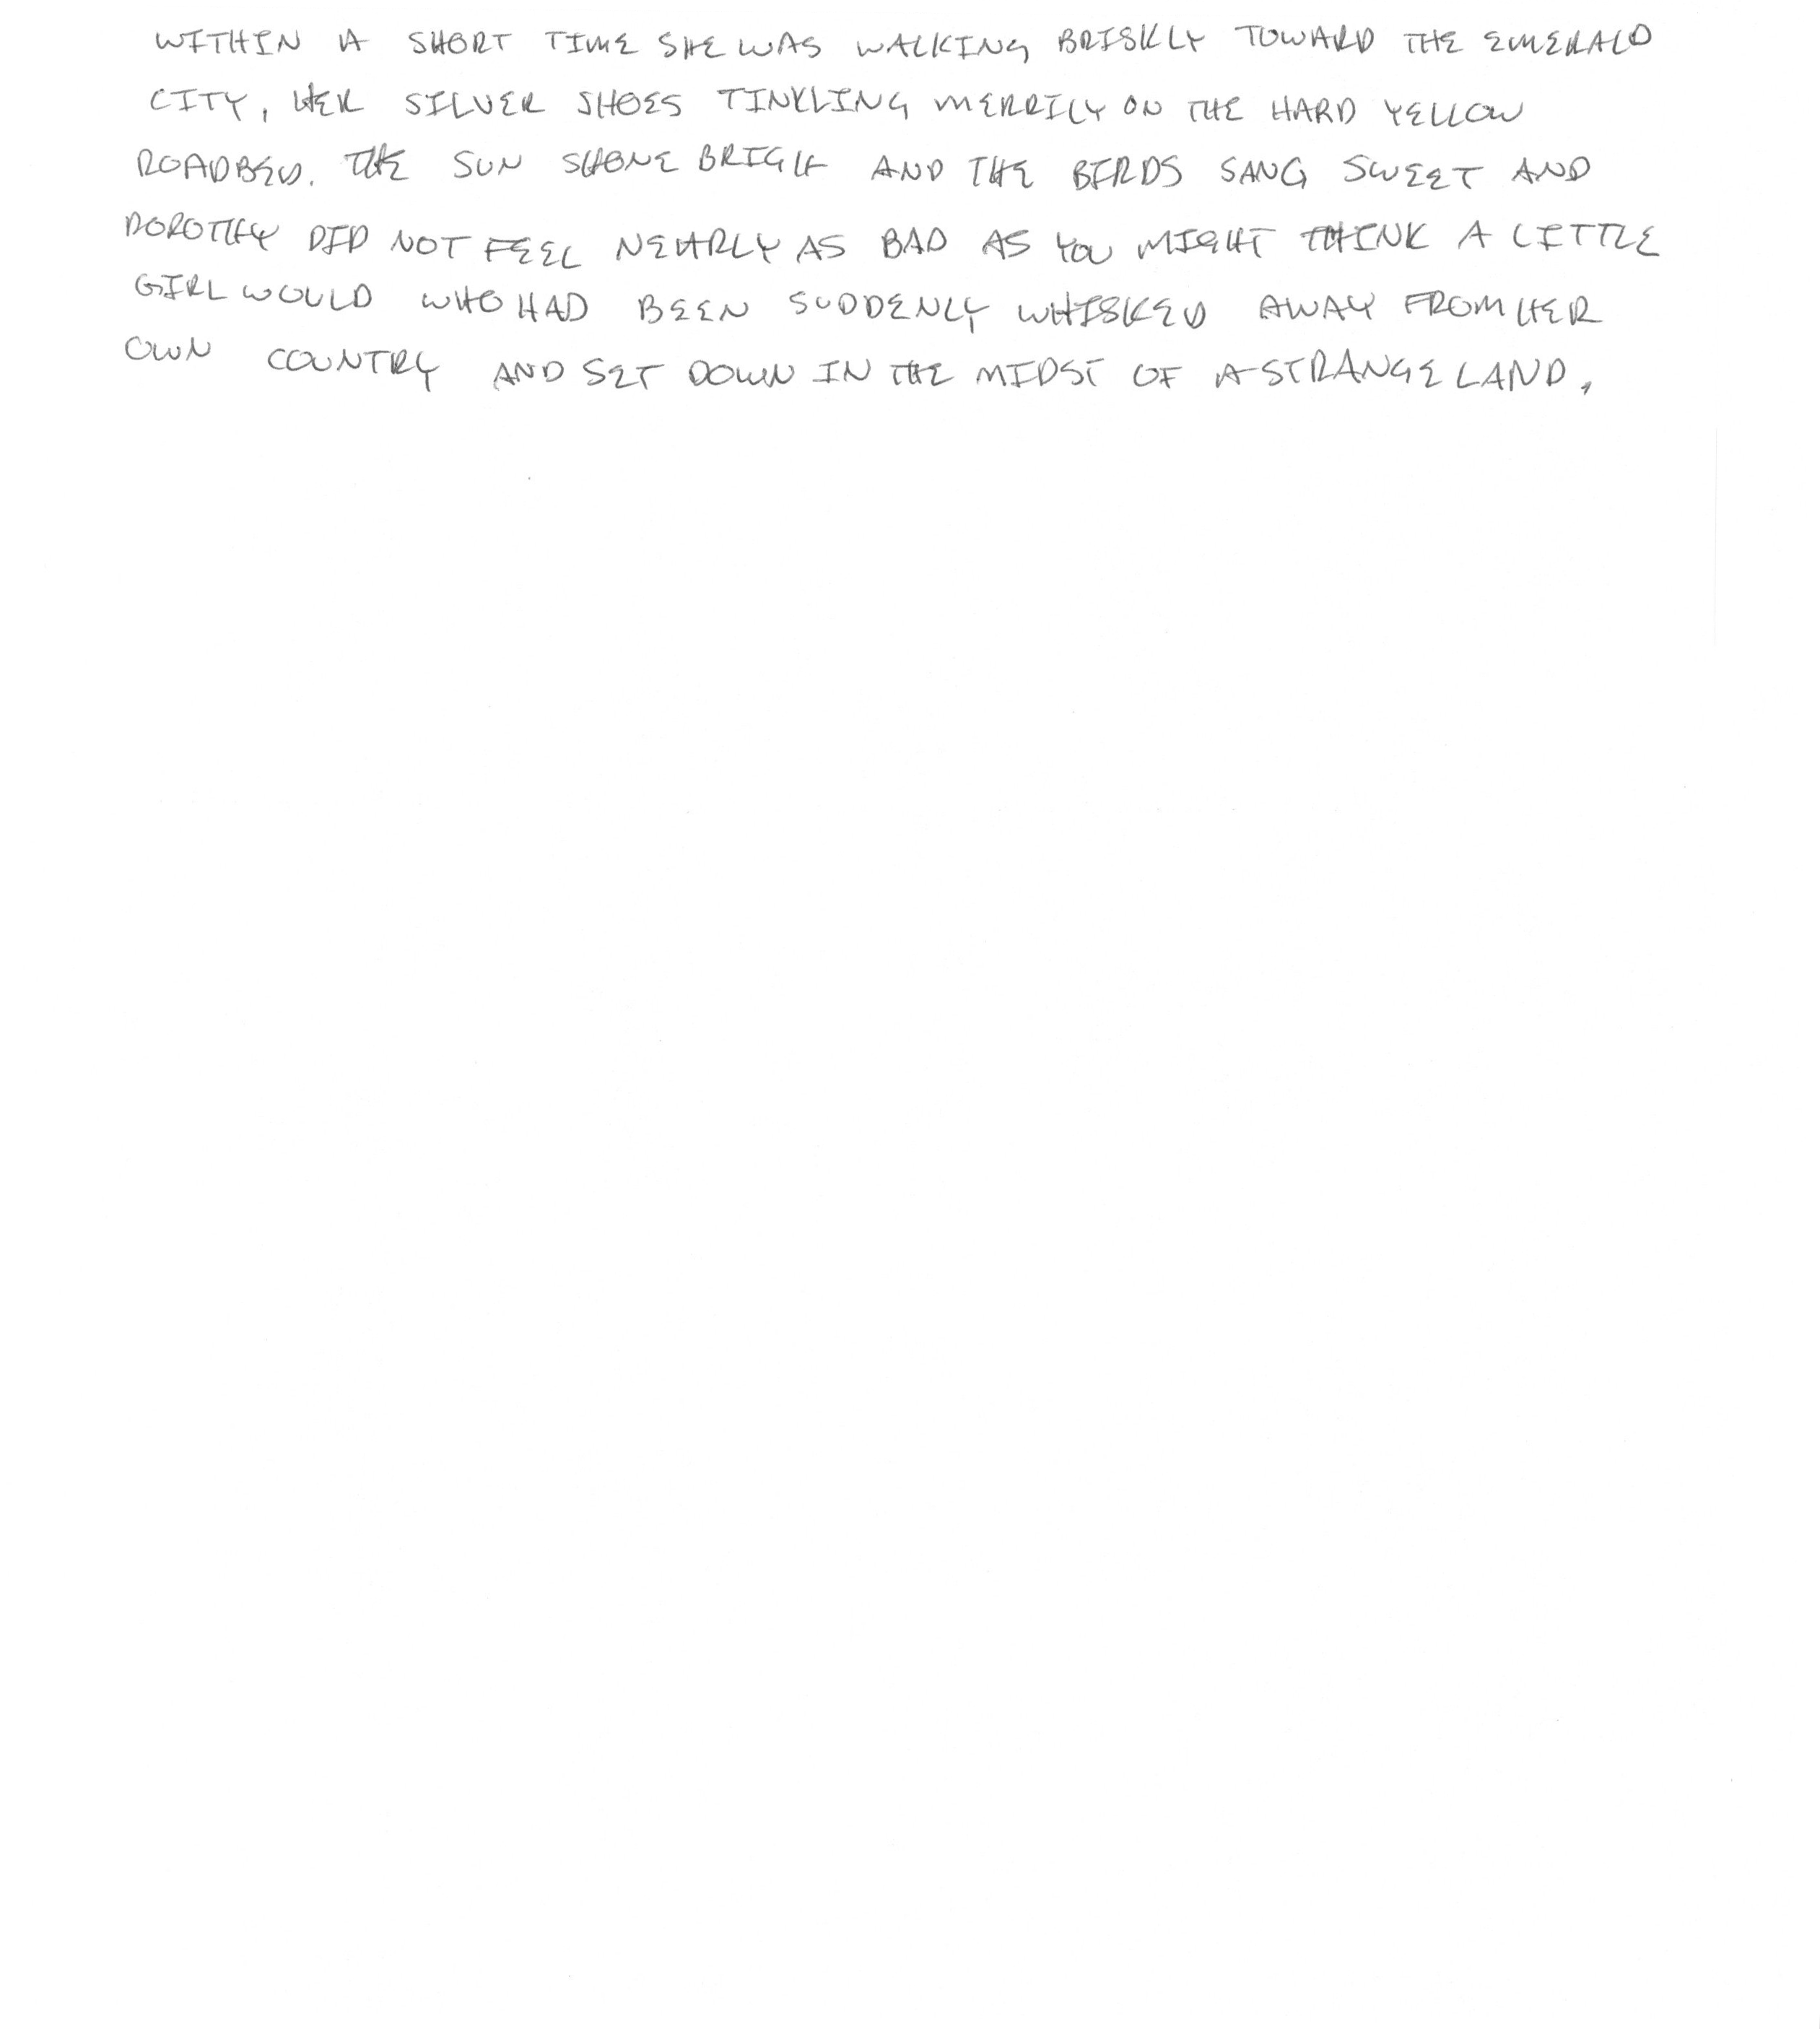 WITHIN A SHORT TIME SHE WAS WALKING BRISKLY TOWARD THE EMERALD
CITY, HER SILVER SHOES TINKLING MERRILY ON THE HARD YELLOW
ROADBED. THE SUN SHONE BRIGHT AND THE BIRDS SANG SWEET AND
DOROTHY DID NOT FEEL NEARLY AS BAD AS YOU MIGHT THINK A LITTLE
GIRL WOULD WHO HAD BEEN SUDDENLY WHISKED AWAY FROM HER
OWN COUNTRY AND SET DOWN IN THE MIDST OF A STRANGE LAND.